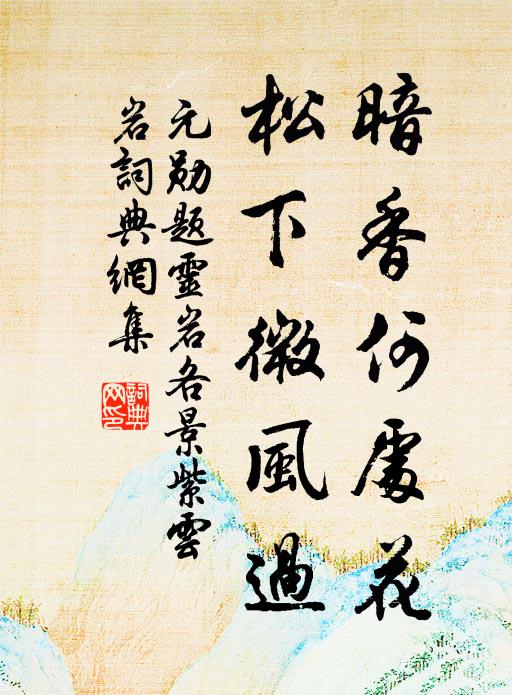 暗香何處花
松下微風過
元勛題靈岩各景紫雲
岩詞典網集
詞典
网印